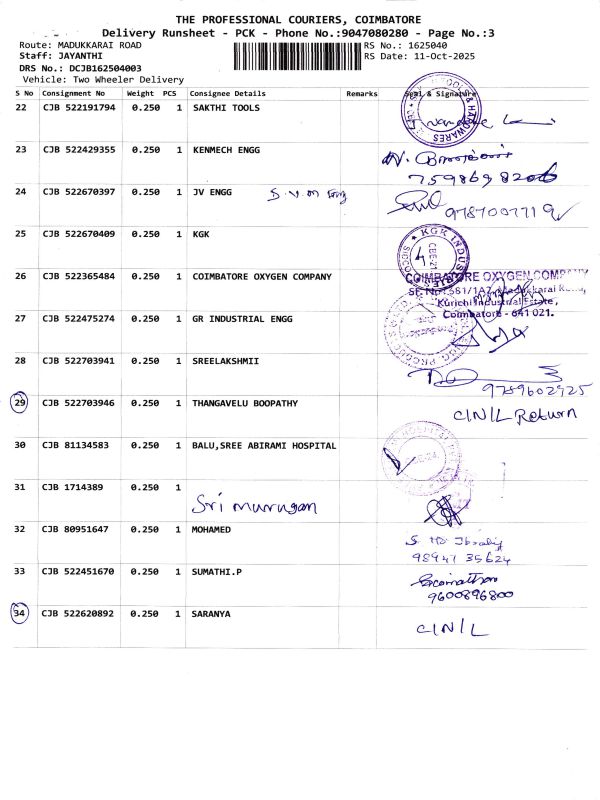 THE PROFESSIONAL COURIERS, COIMBATORE
Delivery Runsheet - PCK - Phone No.:9047080280 - Page No.:3
Route: MADUKKARAI ROAD RS No.: 1625040
Staff: JAYANTHI RS Date: 11-Oct-2025
DRS No.: DCJB162504003
Vehicle: Two Wheeler Delivery
S No Consignment No Weight PCS Consignee Details Remarks Seal & Signature
22 CJB 522191794 0.250 1 SAKTHI TOOLS
23 CJB 522429355 0.250 1 KENMECH ENGG
7598698206
24 CJB 522670397 0.250 1 JV ENGG
9787007719
25 CJB 522670409 0.250 1 KGK
KGK INDUSTRIES
26 CJB 522365484 0.250 1 COIMBATORE OXYGEN COMPANY
COIMBATORE OXYGEN COMPANY
Kurichi Industrial Estate,
Coimbatore - 641 021.
27 CJB 522475274 0.250 1 GR INDUSTRIAL ENGG
28 CJB 522703941 0.250 1 SREELAKSHMII
9789602925
29 CJB 522703946 0.250 1 THANGAVELU BOOPATHY C/N/L Return
30 CJB 81134583 0.250 1 BALU,SREE ABIRAMI HOSPITAL
31 CJB 1714389 0.250 1
Sri murugan
32 CJB 80951647 0.250 1 MOHAMED
98947 35624
33 CJB 522451670 0.250 1 SUMATHI.P
9600896800
34 CJB 522620892 0.250 1 SARANYA C/N/L